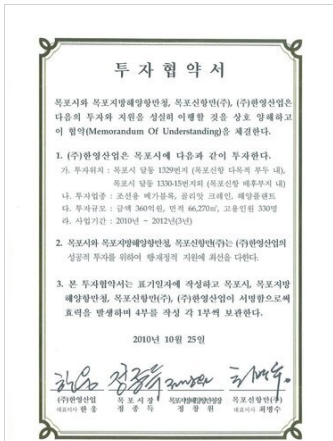 투 자 협 약 서
목포시와 목포지방해양항만청, 목포신항만(주), (주)한영산업은
다음의 투자와 지원을 성실히 이행할 것을 상호 양해하고
이 협약(Memorandum Of Understanding)을 체결한다.
1. (주)한영산업은 목포시에 다음과 같이 투자한다.
가. 투자위치 : 목포시 달동 1329번지 (목포신항 다목적 부두 내),
목포시 달동 1330-15번지외 (목포신항 배후부지 내)
나. 투자업종 : 조선용 메가블록, 골리앗 크레인, 해양플랜트
다. 투자규모 : 금액 360억원, 면적 66,270㎡, 고용인원 330명
라. 사업기간 : 2010년 ~ 2012년(3년)
2. 목포시와 목포지방해양항만청, 목포신항만(주)는 (주)한영산업의
성공적 투자를 위하여 행·재정적 지원에 최선을 다한다.
3. 본 투자협약서는 표기일자에 작성하고 목포시, 목포지방
해양항만청, 목포신항만(주), (주)한영산업이 서명함으로써
효력을 발생하며 4부를 작성 각 1부씩 보관한다.
2010년 10월 25일
(주)한영산업 목 포 시 장 목포지방해양항만청장 목포신항만(주)
대표이사 한 웅 정 종 득 정 창 원 대표이사 최병수